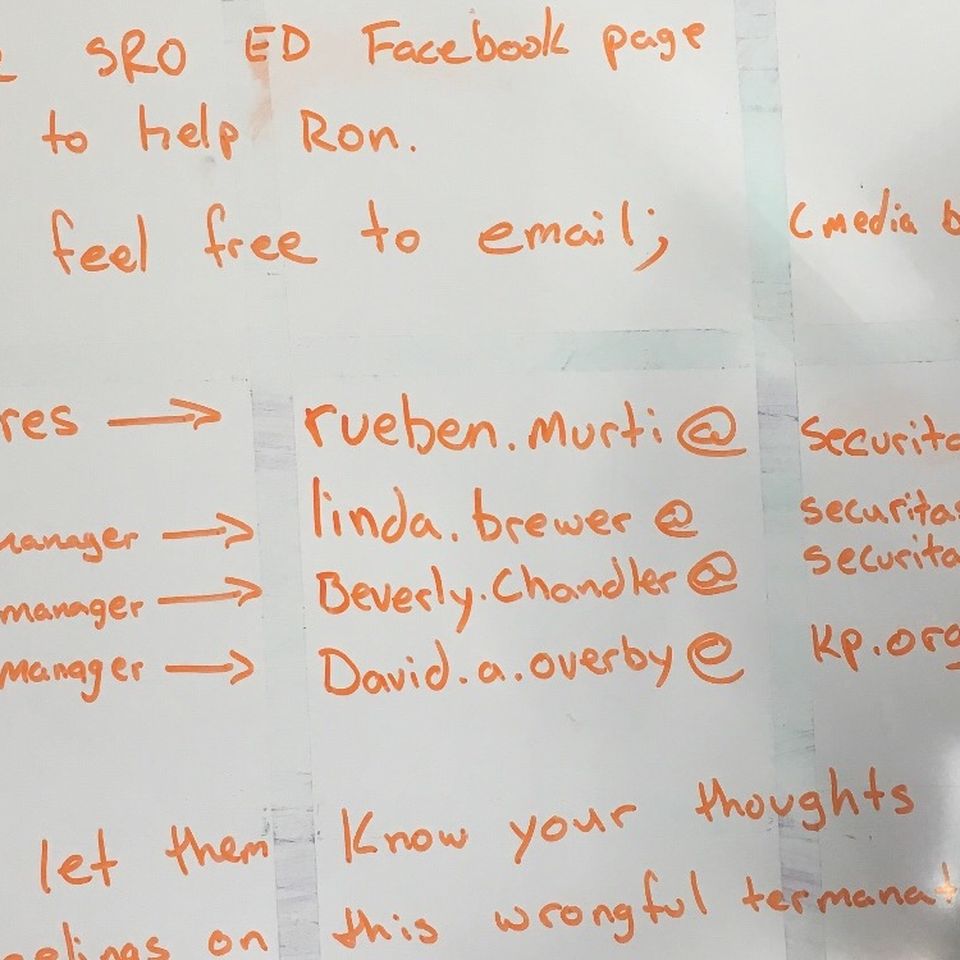 SRO ED Facebook page
to help Ron.
feel free to email; (media b
res → rueben.Murti@ securita
manager → linda.brewer@ securitas
manager → Beverly.Chandler@ securita
manager → David.a.overby@ kp.org
let them know your thoughts
eelings on this wrongful termanat